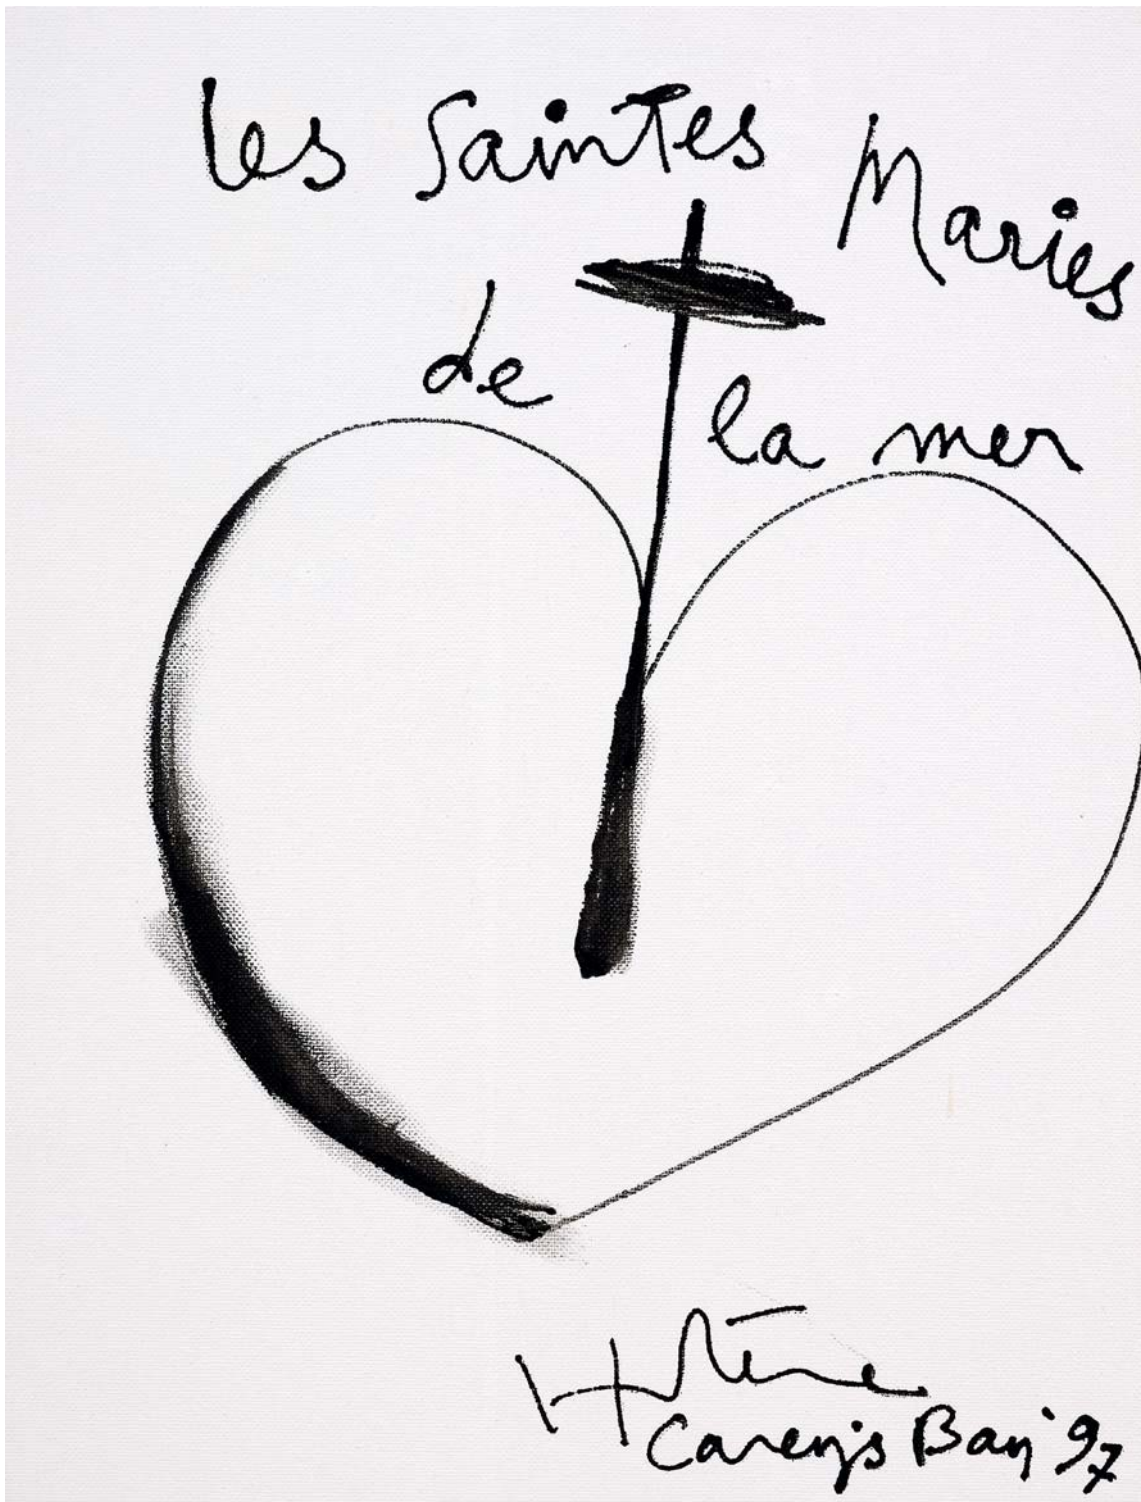 les Saintes Maries
de la mer
Hotere
Carey's Bay '97